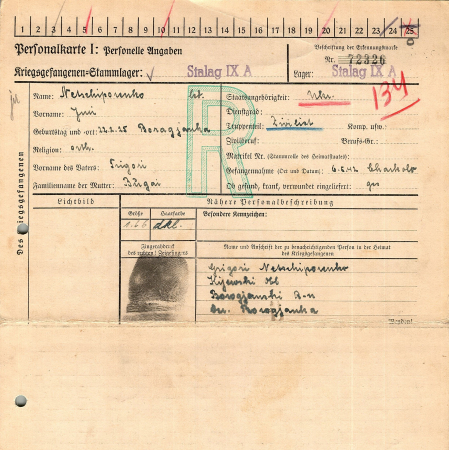 1 2 3 4 5 6 7 8 9 10 11 12 13 14 15 16 17 18 19 20 21 22 23 24 25
Personalkarte I: Personelle Angaben
Kriegsgefangenen-Stammlager: Stalag IX A
Beschriftung der Erkennungsmarke
Nr. 72326
Lager: Stalag IX A
134
R
Des Kriegsgefangenen
Name: Netschiporenko
Vorname: Juri
Geburtstag und -ort: Borogjanka
Religion: orth.
Vorname des Vaters: Grigori
Familienname der Mutter: Bugai
Staatsangehörigkeit: Ukr.
Dienstgrad:
Truppenteil: Zivilist Komp. usw.:
Zivilberuf: Berufs-Gr.:
Matrikel Nr. (Stammrolle des Heimatstaates):
Gefangennahme (Ort und Datum): 6.5.42 Charkow
Ob gesund, krank, verwundet eingeliefert: ges
Lichtbild
Nähere Personalbeschreibung
Größe
Haarfarbe
Besondere Kennzeichen:
1.66
dkl.
Fingerabdruck
des rechten! Zeigefingers
Name und Anschrift der zu benachrichtigenden Person in der Heimat
des Kriegsgefangenen
Grigori Netschiporenko
Kijewski Obl
Borogjanski R-n
Borogjanka
Wenden!